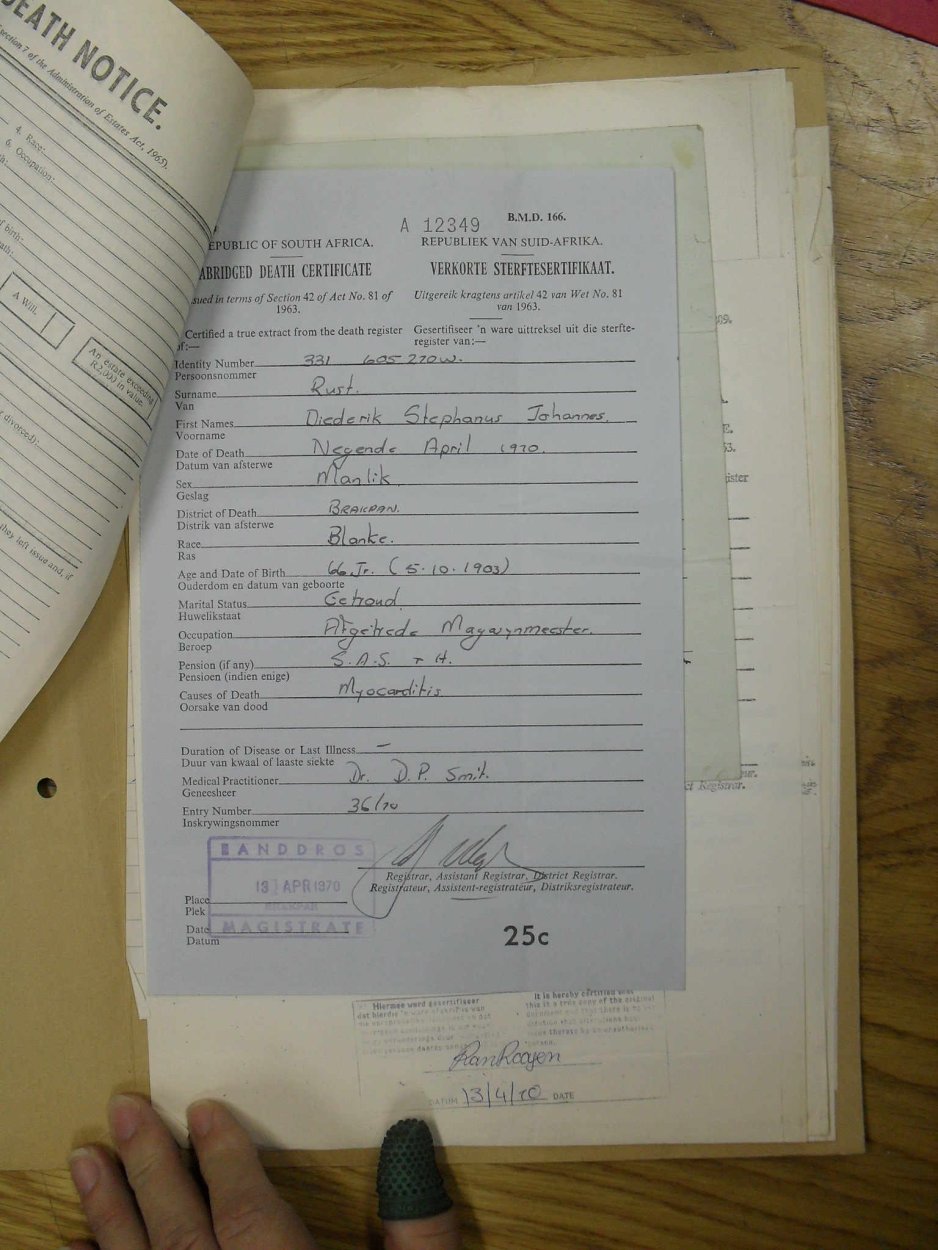 DEATH NOTICE.
section 7 of the Administration of Estates Act, 1965).
4. Race:
6. Occupation:
of birth:
A Will.
An estate exceeding
R2,000 in value.
divorced):
they left issue and, if
A 12349 B.M.D. 166.
EPUBLIC OF SOUTH AFRICA. REPUBLIEK VAN SUID-AFRIKA.
ABRIDGED DEATH CERTIFICATE VERKORTE STERFTESERTIFIKAAT.
sued in terms of Section 42 of Act No. 81 of Uitgereik kragtens artikel 42 van Wet No. 81
1963. van 1963.
Certified a true extract from the death register Gesertifiseer 'n ware uittreksel uit die sterfte-
of:— register van:—
Identity Number 331 605 220 W.
Persoonsnommer
Surname Rust.
Van
First Names Diederik Stephanus Johannes.
Voorname
Date of Death Negende April 1970.
Datum van afsterwe
Sex Manlik.
Geslag
District of Death BRAKPAN.
Distrik van afsterwe
Race Blanke.
Ras
Age and Date of Birth 66 Jr. (5.10.1903)
Ouderdom en datum van geboorte
Marital Status Getroud.
Huwelikstaat
Occupation Afgetrede Magasynmeester.
Beroep
Pension (if any) S.A.S. + H.
Pensioen (indien enige)
Causes of Death Myocarditis
Oorsake van dood
Duration of Disease or Last Illness —
Duur van kwaal of laaste siekte
Medical Practitioner Dr. D.P. Smit.
Geneesheer
Entry Number 36/70
Inskrywingsnommer
LANDDROS
13 APR 1970
BRAKPAN
MAGISTRATE
Registrar, Assistant Registrar, District Registrar.
Registrateur, Assistent-registrateur, Distriksregistrateur.
Place
Plek
Date
Datum
25c
Hiermee word gesertifiseer It is hereby certified that
dat hierdie 'n ware afskrif is van this is a true copy of the original
DATUM 13/4/70 DATE